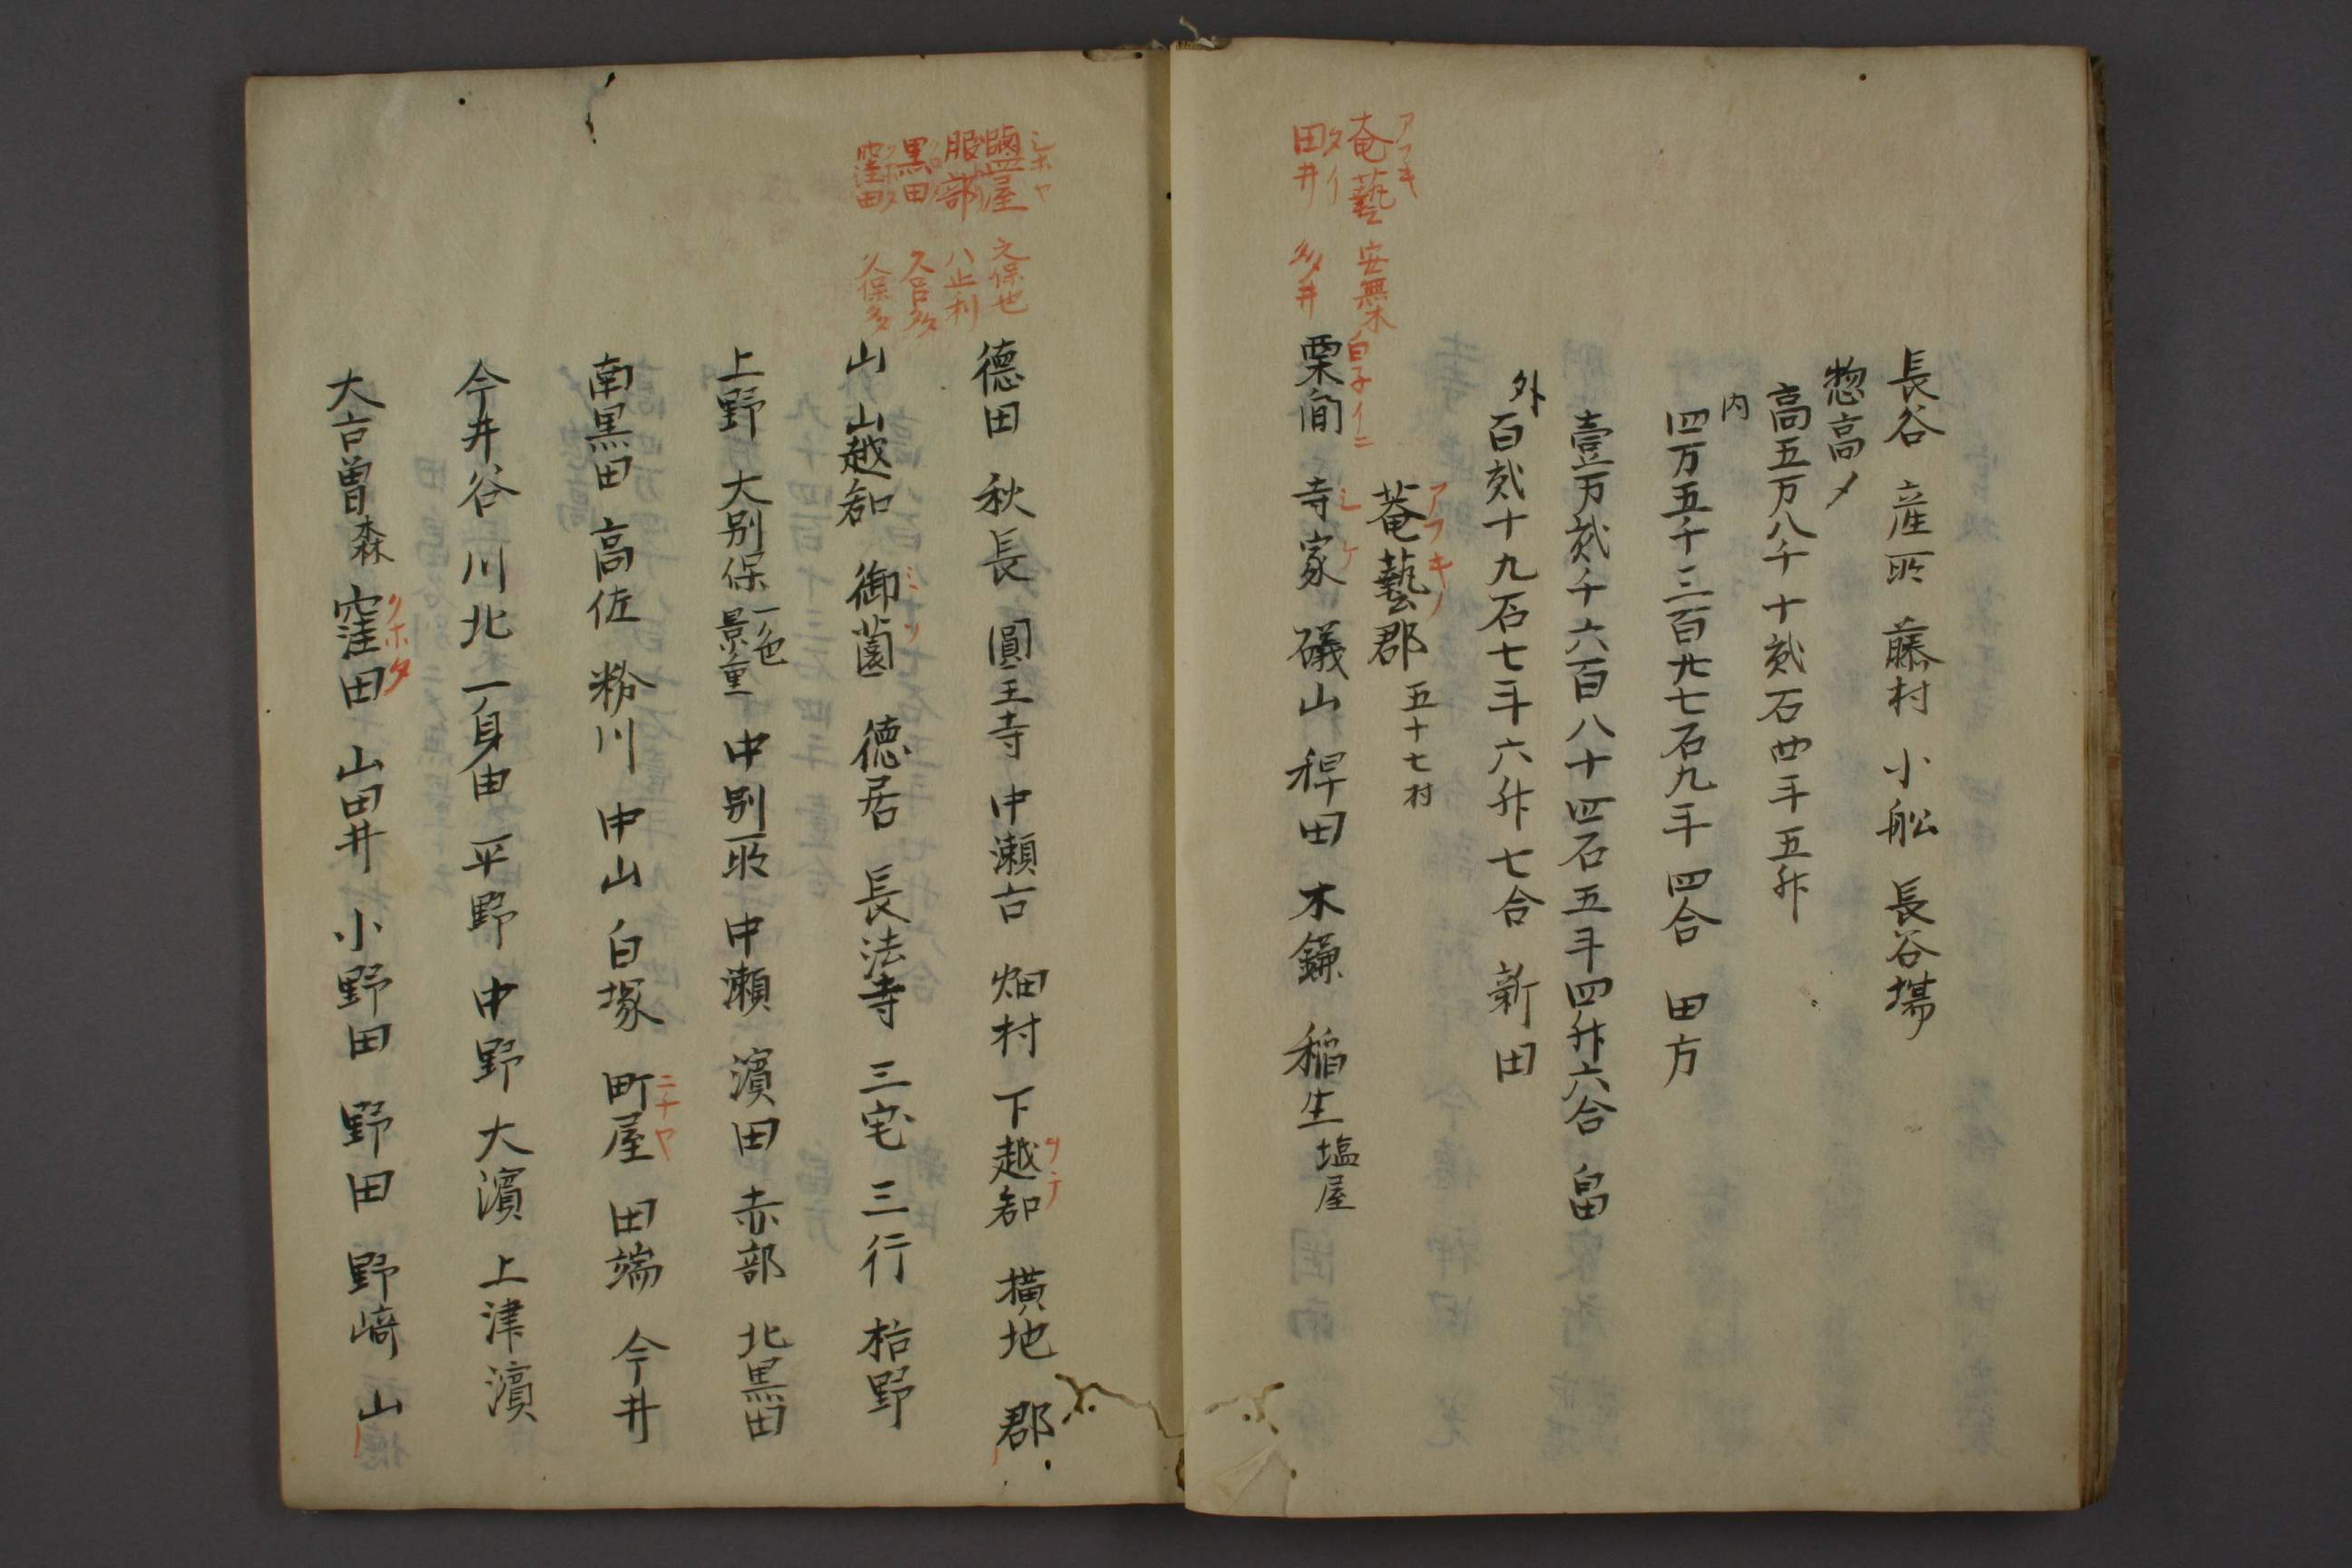 長谷 産所 藤村 小舩 長谷場
惣高〆
高五万八千十貳石四斗五升
内
四万五千三百廿七石九斗四合 田方
壹万貳千六百八十四石五斗四升六合 畠
外
百貳十九石七斗六升七合 新田
アフキノ
菴藝郡 五十七村
アフキ
奄藝 安無木
白子イニ
タイ
田井 多井
シケ
栗間 寺家 礒山 稗田 木鎌 稲生 塩屋
シホヤ
鹽屋 之保也
服部 八止利
黒田 久呂多
クホタ
窪田 久保多
ヲチ
徳田 秋長 圓王寺 中瀬古 畑村 下越知 横地 郡
ミソ
山 山越知 御薗 徳居 長法寺 三宅 三行 秴野
上野 大別保 一色 景重 中別所 中瀬 濱田 赤部 北黒田
ニチヤ
南黒田 高佐 粉川 中山 白塚 町屋 田端 今井
今井谷 川北 一身由 平野 中野 大濱 上津濱
クホタ
大古曽 森 窪田 山田井 小野田 野田 野﨑 山